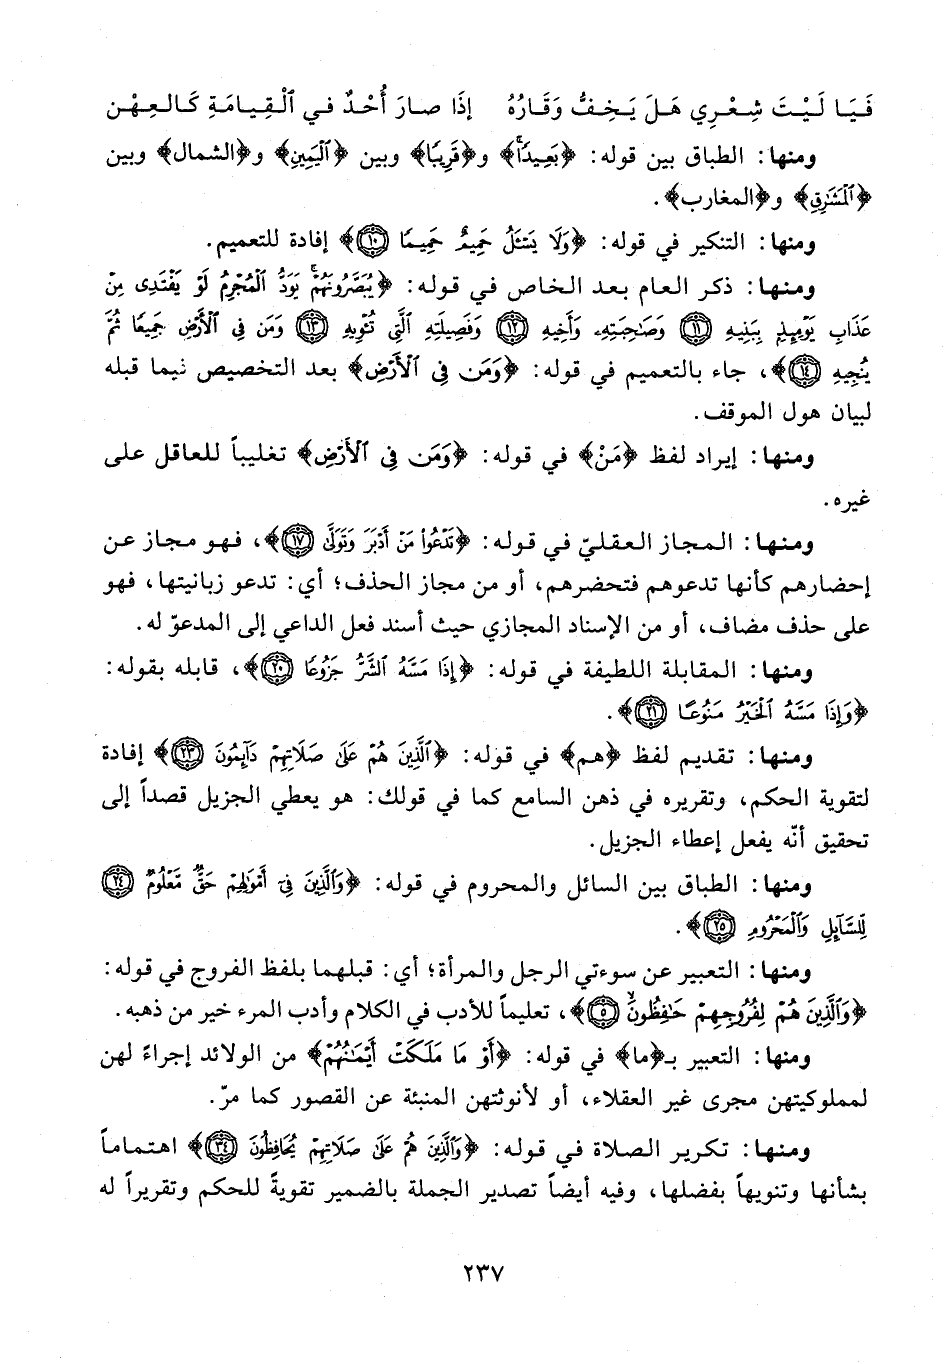 فَيَا لَيْتَ شِعْرِي هَلَ يَخِفُّ وَقَارُهُ إِذَا صارَ أُحْدٌ في اَلْقِيامَةِ كَالعِهْنِ
ومنها: الطباق بين قوله: ﴿بَعِيدًا﴾ و﴿قَرِيبًا﴾ وبين ﴿اَلْيَمِينِ﴾ و﴿الشمال﴾ وبين
﴿اَلْمَشَارِقِ﴾ و﴿المغارب﴾.
ومنها: التنكير في قوله: ﴿وَلَا يَسْـَٔلُ حَمِيمٌ حَمِيمًا ١٠﴾ إفادة للتعميم.
ومنها: ذكر العام بعد الخاص في قوله: ﴿يُبَصَّرُونَهُمْ يَوَدُّ ٱلْمُجْرِمُ لَوْ يَفْتَدِى مِنْ
عَذَابِ يَوْمِئِذٍ بِبَنِيهِ ١١ وَصَٰحِبَتِهِۦ وَأَخِيهِ ١٢ وَفَصِيلَتِهِ ٱلَّتِى تُـْٔوِيهِ ١٣ وَمَن فِى ٱلْأَرْضِ جَمِيعًا ثُمَّ
يُنجِيهِ ١٤﴾، جاء بالتعميم في قوله: ﴿وَمَن فِى ٱلْأَرْضِ﴾ بعد التخصيص نيما قبله
لبيان هول الموقف.
ومنها: إيراد لفظ ﴿مَنْ﴾ في قوله: ﴿وَمَن فِى ٱلْأَرْضِ﴾ تغليباً للعاقل على
غيره.
ومنها: المجاز العقليّ في قوله: ﴿تَدْعُوا۟ مَنْ أَدْبَرَ وَتَوَلَّىٰ ١٧﴾، فهو مجاز عن
إحضارهم كأنها تدعوهم فتحضرهم، أو من مجاز الحذف؛ أي: تدعو زبانيتها، فهو
على حذف مضاف، أو من الإسناد المجازي حيث أسند فعل الداعي إلى المدعوّ له.
ومنها: المقابلة اللطيفة في قوله: ﴿إِذَا مَسَّهُ ٱلشَّرُّ جَزُوعًا ٢٠﴾، قابله بقوله:
﴿وَإِذَا مَسَّهُ ٱلْخَيْرُ مَنُوعًا ٢١﴾.
ومنها: تقديم لفظ ﴿هم﴾ في قوله: ﴿ٱلَّذِينَ هُمْ عَلَىٰ صَلَاتِهِمْ دَآئِمُونَ ٢٣﴾ إفادة
لتقوية الحكم، وتقريره في ذهن السامع كما في قولك: هو يعطي الجزيل قصداً إلى
تحقيق أنّه يفعل إعطاء الجزيل.
ومنها: الطباق بين السائل والمحروم في قوله: ﴿وَٱلَّذِينَ فِىٓ أَمْوَٰلِهِمْ حَقٌّ مَّعْلُومٌ ٢٤
لِّلسَّآئِلِ وَٱلْمَحْرُومِ ٢٥﴾.
ومنها: التعبير عن سوءتي الرجل والمرأة؛ أي: قبلهما بلفظ الفروج في قوله:
﴿وَٱلَّذِينَ هُمْ لِفُرُوجِهِمْ حَٰفِظُونَ ٥﴾، تعليماً للأدب في الكلام وأدب المرء خير من ذهبه.
ومنها: التعبير بـ﴿ما﴾ في قوله: ﴿أَوْ مَا مَلَكَتْ أَيْمَٰنُهُمْ﴾ من الولائد إجراءً لهن
لمملوكيتهن مجرى غير العقلاء، أو لأنوثتهن المنبئة عن القصور كما مرّ.
ومنها: تكرير الصلاة في قوله: ﴿وَٱلَّذِينَ هُمْ عَلَىٰ صَلَاتِهِمْ يُحَافِظُونَ ٣٤﴾ اهتماماً
بشأنها وتنويهاً بفضلها، وفيه أيضاً تصدير الجملة بالضمير تقويةً للحكم وتقريراً له
٢٣٧